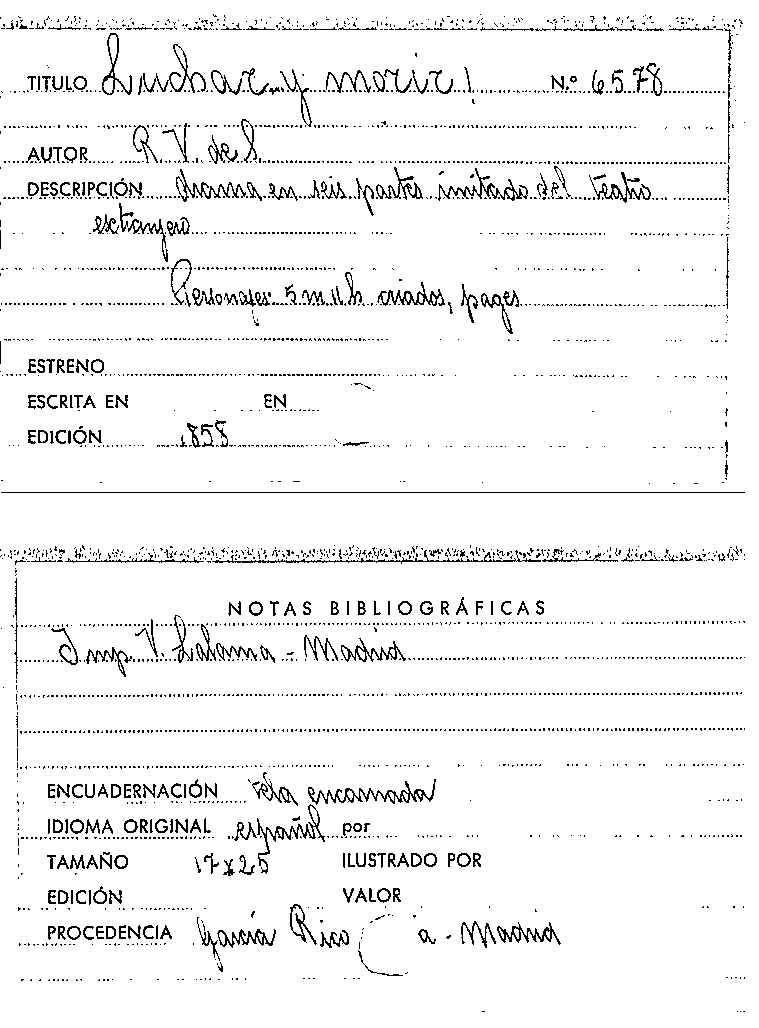 TITULO Luchar y morir! N.º 6578
AUTOR R. V. de S.
DESCRIPCIÓN drama en seis partes imitado del teatro
extranjero
Personajes 5 m 11 h criados, pages
ESTRENO
ESCRITA EN EN
EDICIÓN 1858
NOTAS BIBLIOGRÁFICAS
Imp. V. Lalama - Madrid
ENCUADERNACIÓN tela encarnada
IDIOMA ORIGINAL español por
TAMAÑO 17x25 ILUSTRADO POR
EDICIÓN VALOR
PROCEDENCIA García Rico C a - Madrid